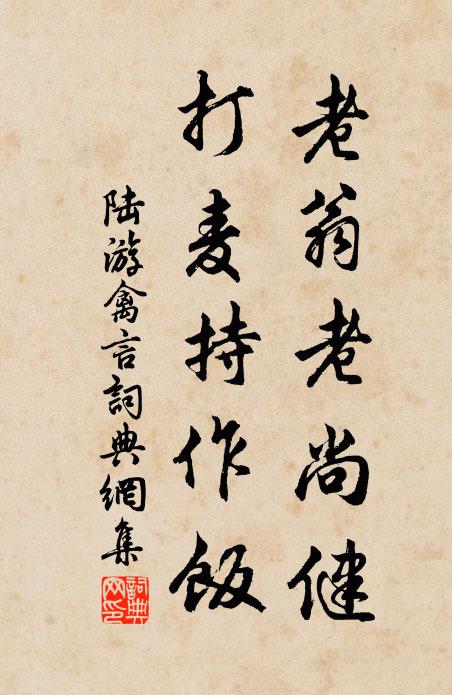 老翁老尚健
打麦持作飯
陆游禽言詞典網集
詞典